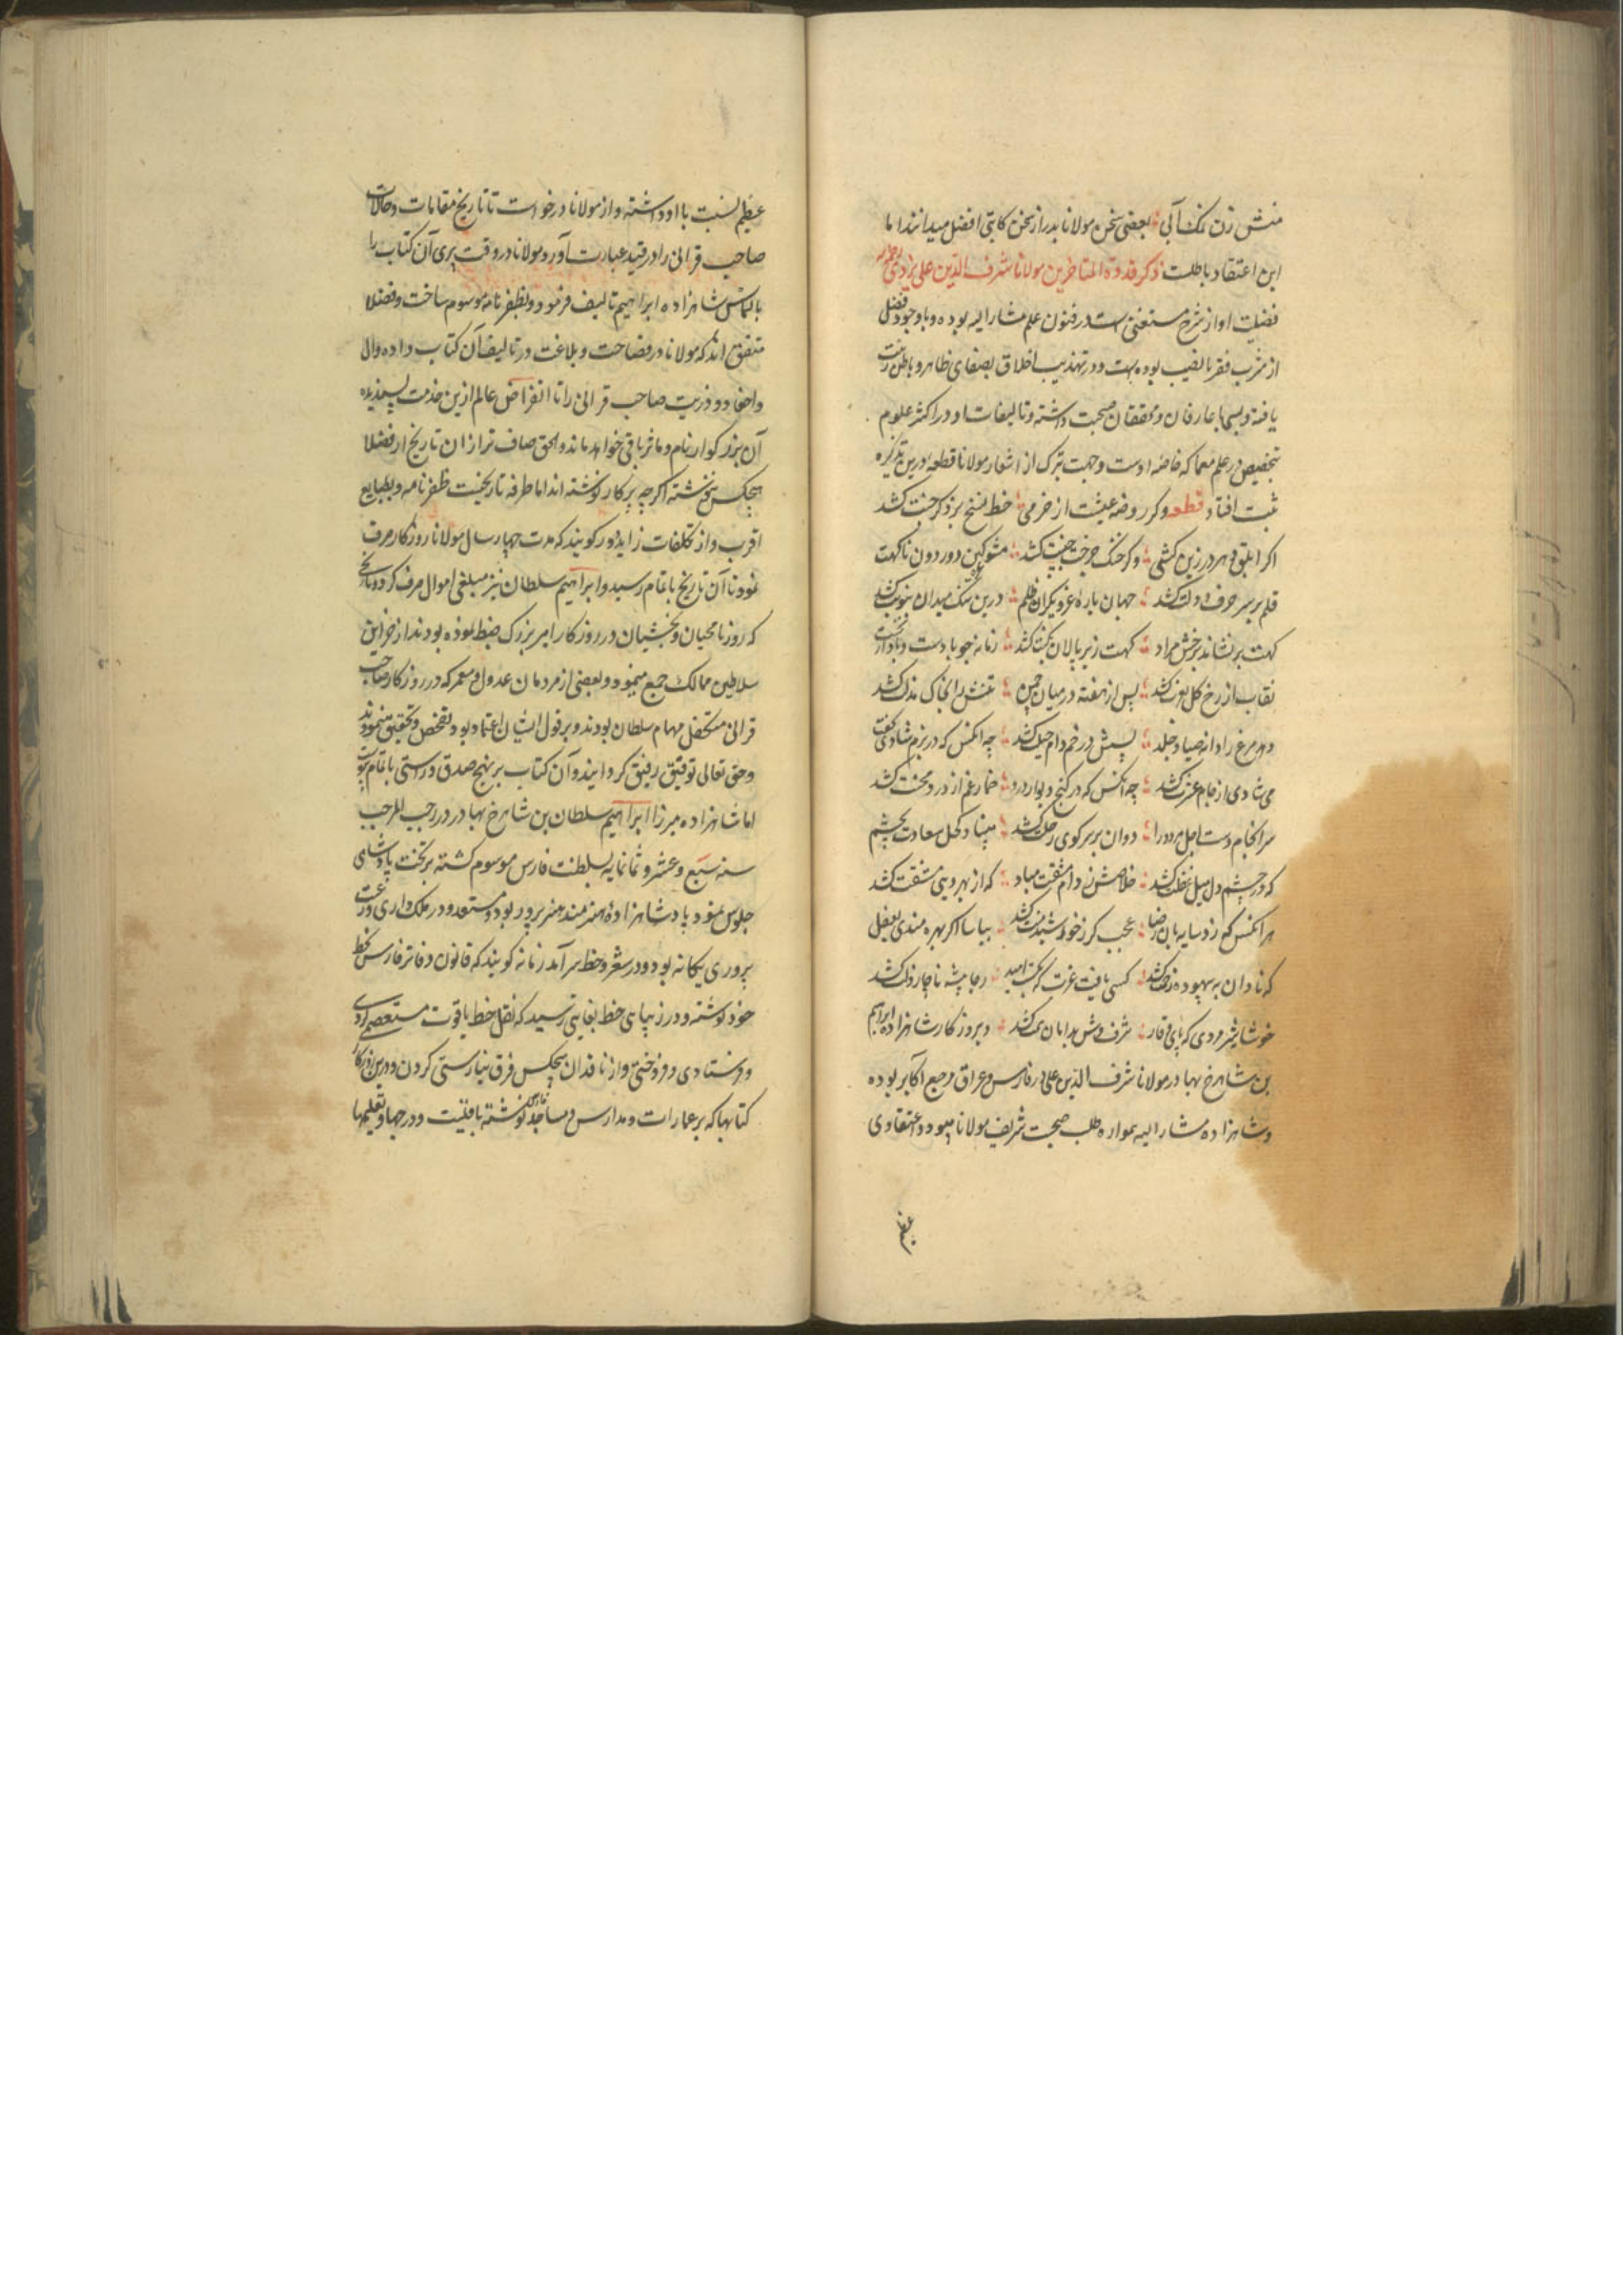 منش زن نمک آبی بعضی سخن مولانا بدر از سخن کاتبی افضل میدانند اما
این اعتقاد باطلست ذکر قدوة المتاخرین مولانا شرف الدین علی یزدی
فضیلت او از شرح مستغنی است در فنون علم مشار الیه بوده و با وجود فضل
از مشرب فقر با نصیب بوده است و در تهذیب اخلاق بصفای ظاهر و باطن زینت
یافته و بسی با عارفان و محققان صحبت داشته و تالیفات او در اکثر علوم
بتخصیص در علم معما که خاصه اوست و جهت تبرک از اشعار مولانا قطعه درین تذکره
ثبت افتاد قطعه وکر روضه عیشت از خرمی خط نسخ بر ذکر جنت کشد
اکر ابلق دهر در زین کشی وکر خنک چرخت جنیبت کشد مشو کین دور دون ناکهت
قلم بر سر حرف دولت کشد جهان باره عز و نیکران ظلم درین تنک میدان بنوبت کشد
کهت بر نشاند برخش مراد کهت زیر پالان نکبت کشد زمانه چو باد است و باد از نخست
نقاب از رخ کل بعزت کشد پس از هفته در میان چمن تنش را بخاک مذلت کشد
دهد مرغ را دانه صیاد و جلد پسش در خم دام حیلت کشد چه آنکس که در بزم شادی کفت
می شادی از جام عزت کشد چه آنکس که در کنج دیوار درد خمار غم از درد محنت کشد
سرانجام دست اجل هر دو را دوان بر سر کوی رحلت کشد مبیناد کحل سعادت بچشم
که در چشم دل میل غفلت کشد خلاصش ز دام مشقت مباد که از بهر دنیی مشقت کشد
هر آنکس کم زد سایه بان رضا عجب کر ز خورشید منت کشد بیاسا اکر بهره مندی بعقل
که نادان به بیهوده زحمت کشد کسی یافت عزت که بکسست امید رجا پیشه ناچار ذلت کشد
خوشا شیر مردی که پای وقار شرف وش بدامان همت کشد و بروزکار شاهزاده ابراهیم
بن شاهرخ بهادر مولانا شرف الدین علی در فارس و عراق مرجع اکابر بوده
و شاهزاده مشار الیه همواره طلب صحبت شریف مولانا مینمود و اعتقادی
عظیم
عظیم نسبت با او داشته و از مولانا درخواست تا تاریخ مقامات و حالات
صاحب قرانی را در قید عبارت آورد و مولانا در وقت پیری آن کتاب را
بالتماس شاهزاده ابراهیم تالیف فرمود و بظفر نامه موسوم ساخت و فضلا
متفق اند که مولانا در فصاحت و بلاغت در تالیف آن کتاب داده وال
و احفاد و ذریت صاحب قرانی را تا انقراض عالم ازین خدمت پسندیده
آن بزرکوار نام و ماثر باقی خواهد ماند و الحق صاف تر از ان تاریخ از فضلا
هیچکس ننوشته اکرچه پرکار نوشته اند اما طرفه تاریخیست ظفر نامه و بطبایع
اقرب و از تکلفات زاید دور کویند که مدت چهار سال مولانا روزکار صرف
نمود تا آن تاریخ باتمام رسید و ابراهیم سلطان نیز مبلغی اموال صرف کرد و تاریخ
که روزنامجیان و بخشیان در روزکار امیر بزرک ضبط نموده بودند از خزاین
سلاطین ممالک جمع مینمود و بعضی از مردمان عدول و معمر که در روزکار صاحب
قرانی متکفل مهام سلطان بودند و بر قول ایشان اعتماد بود تفحص و تحقیق مینمودند
و حق تعالی توفیق رفیق کردانید و آن کتاب بر نهج صدق و راستی باتمام پیوست
اما شاهزاده میرزا ابراهیم سلطان بن شاهرخ بهادر در رجب المرجب
سنه سبع و عشر و ثمانمایه بسلطنت فارس موسوم کشته بر تخت پادشاهی
جلوس نمود پادشاهزاده هنرمند هنرپرور بود و مستعد و در ملک داری و رعیت
پروری یکانه بود و در شعر و خط سرآمد زمانه کویند که قانون دفاتر فارس بخط
خود نوشته و در زیبایی خط بغایتی رسید که نقل خط یاقوت مستعصمی کردی
و فرستادی و فروختی و از ناقدان هیچکس فرق نیارستی کردن و درین روزکار
کتابها که بر عمارات و مدارس و مساجد فارس نوشته باقیست و در جها و تعلیمها